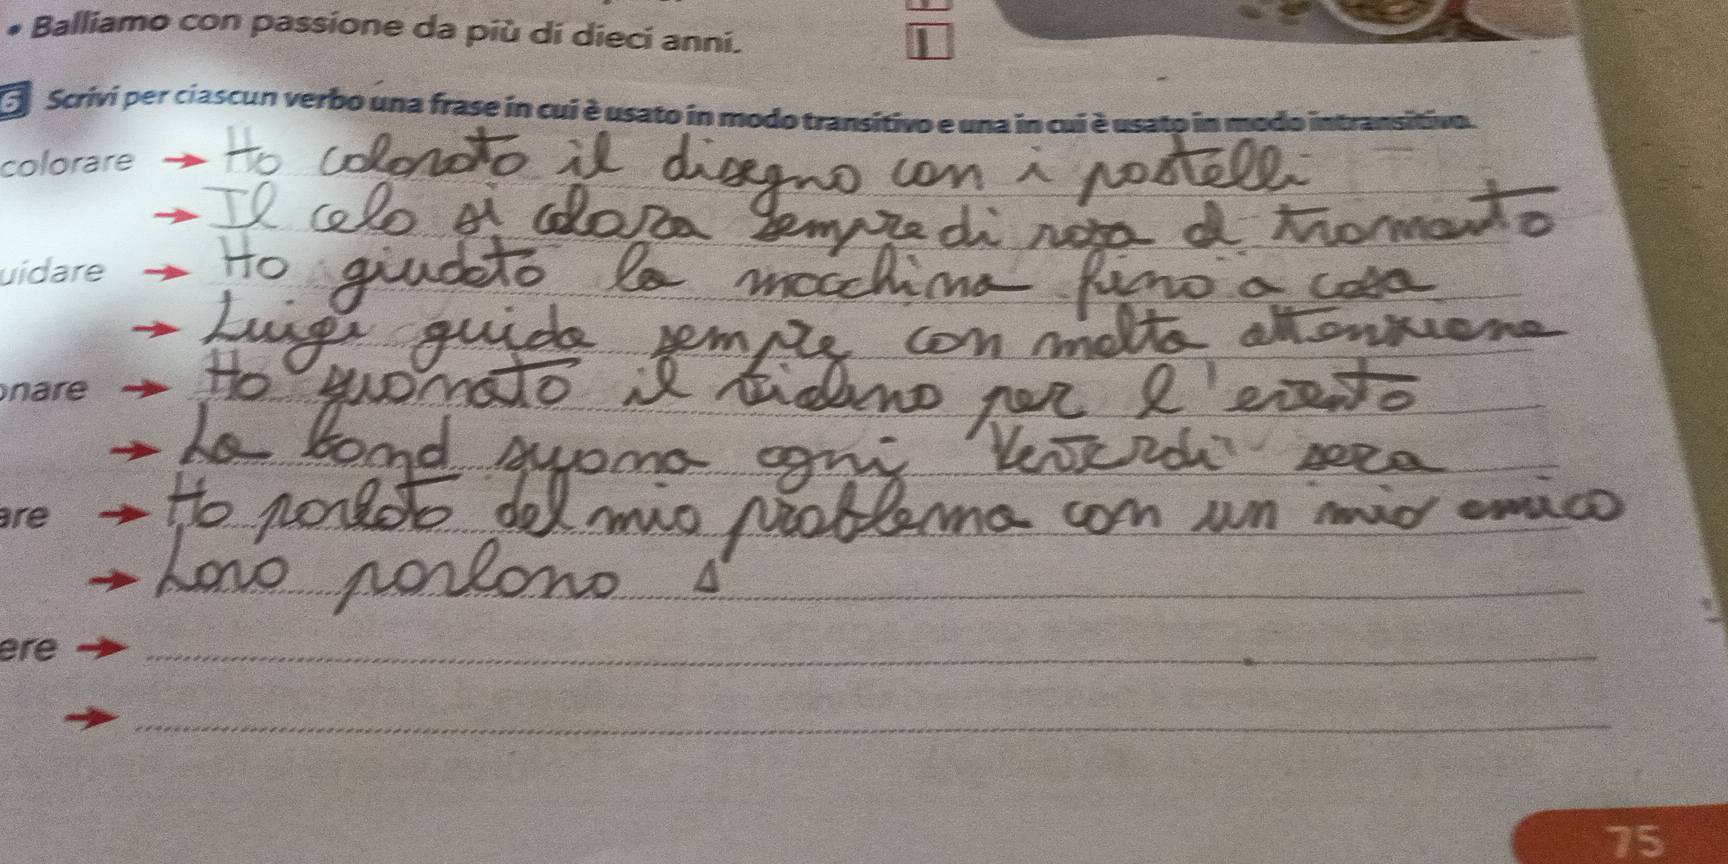 • Balliamo con passione da più di dieci anni. I
6 Scrivi per ciascun verbo una frase in cui è usato in modo transitivo e una in cui è usato in modo intransitivo.
colorare → Ho colorato il disegno con i pastelli
→ Il celo si colora sempre di rosa al tramonto
uidare → Ho giudato la macchina fino a casa
→ Luigi guida sempre con molta attenzione
onare → Ho suonato il violino per l'evento
→ La band suona ogni Venerdì sera
are → Ho parlato del mio problema con un mio amico
→ Loro parlano
ere →
→
75